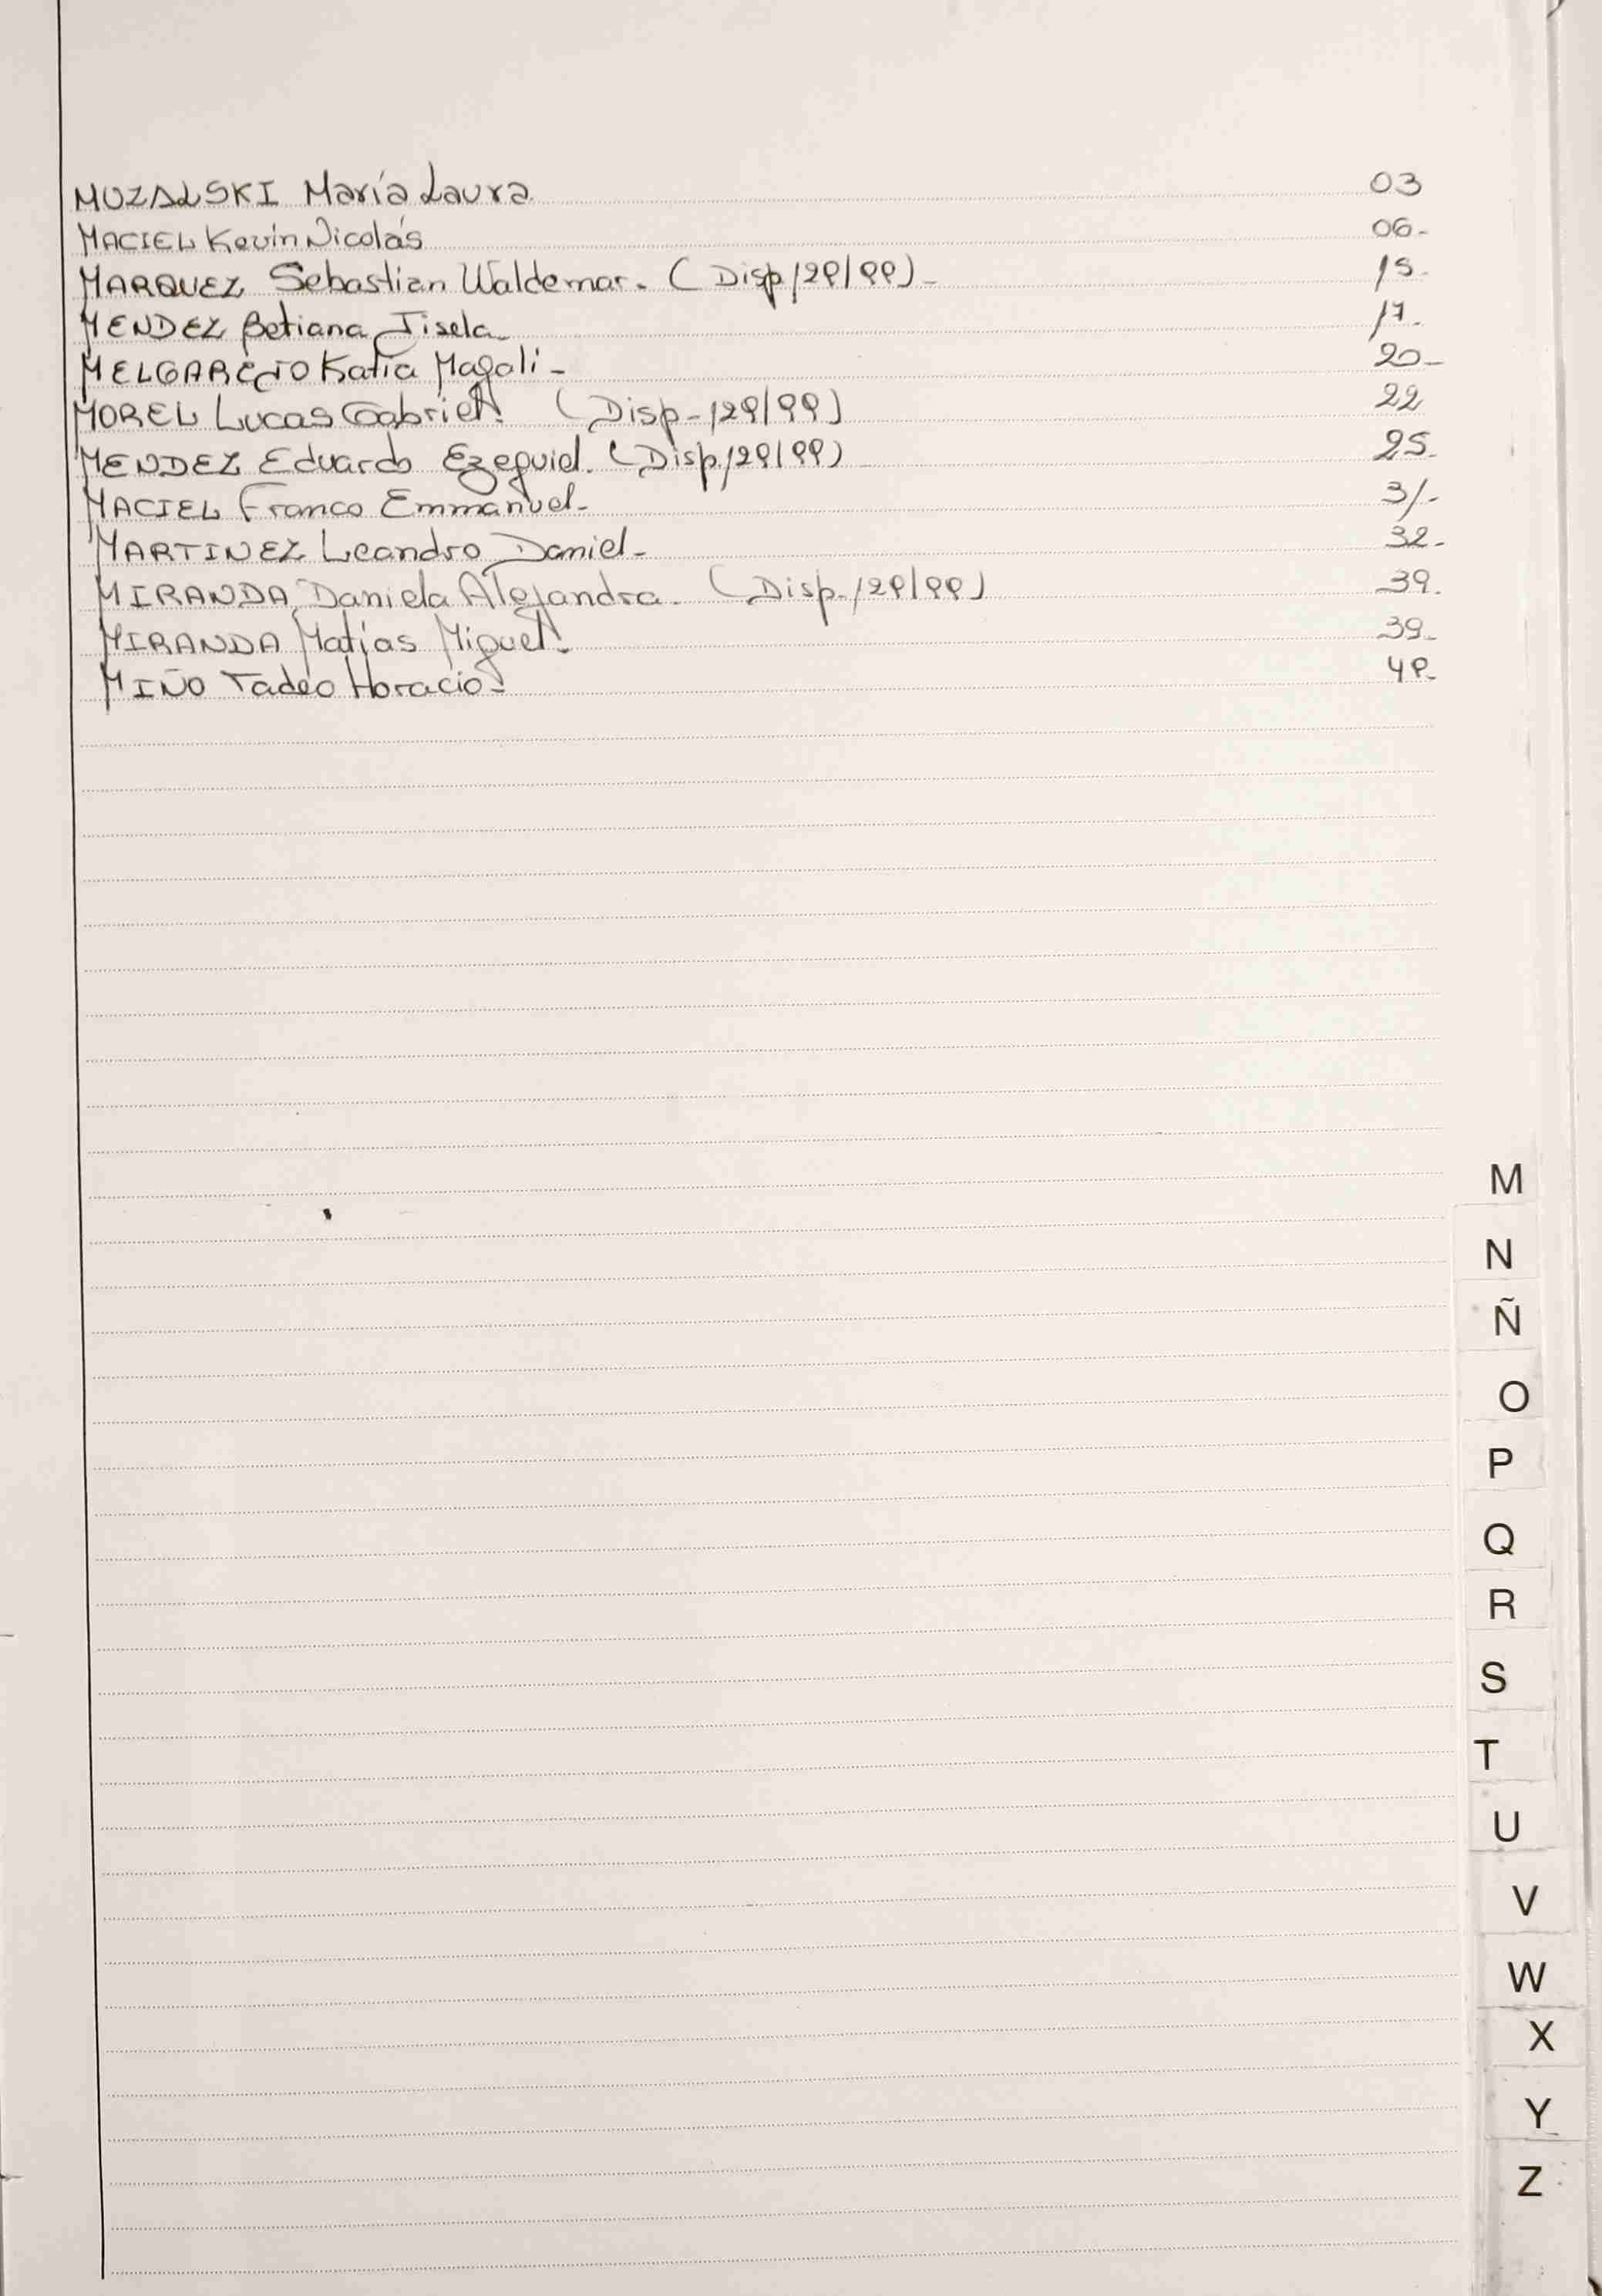 MUZALSKI María Laura 03
MACIEL Kevin Nicolás 06-
MARQUEZ Sebastian Waldemar. (Disp 129/99)- 15-
MENDEZ Betiana Jisela- 17-
MELGAREJO Katia Magali- 20-
MOREL Lucas Gabriel. (Disp-129/99) 22
MENDEZ Eduardo Ezequiel. (Disp.129/99) 25-
MACIEL Franco Emmanuel- 31-
MARTINEZ Leandro Daniel- 32-
MIRANDA, Daniela Alejandra. (Disp.129/99) 39.
MIRANDA Matías Miguel. 39-
MIÑO Tadeo Horacio- 49-
M
N
Ñ
O
P
Q
R
S
T
U
V
W
X
Y
Z